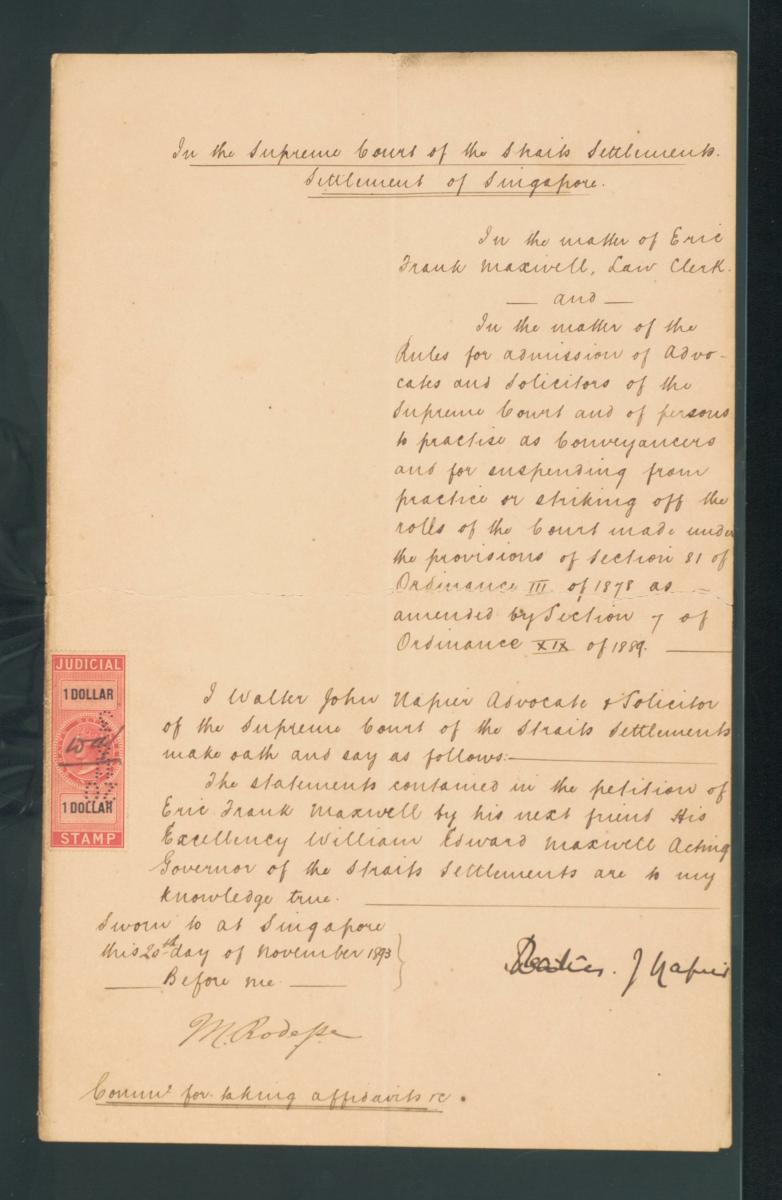 In the Supreme Court of the Straits Settlements.
Settlement of Singapore.
In the matter of Eric
Frank Maxwell, Law Clerk.
— and —
In the matter of the
Rules for admission of Advo-
cates and Solicitors of the
Supreme Court and of persons
to practise as Conveyancers
and for suspending from
practice or striking off the
rolls of the Court made under
the provisions of Section 81 of
Ordinance III of 1878 as
amended by Section 7 of
Ordinance XIX of 1889.
JUDICIAL
1 DOLLAR
1 DOLLAR
STAMP
I Walter John Napier Advocate & Solicitor
of the Supreme Court of the Straits Settlements
make oath and say as follows:—
The statements contained in the petition of
Eric Frank Maxwell by his next friend His
Excellency William Edward Maxwell Acting
Governor of the Straits Settlements are to my
knowledge true.
Sworn to at Singapore
this 20th day of November 1893
Before me
J Napier
M. Rodesse
Commr. for taking affidavits &c.